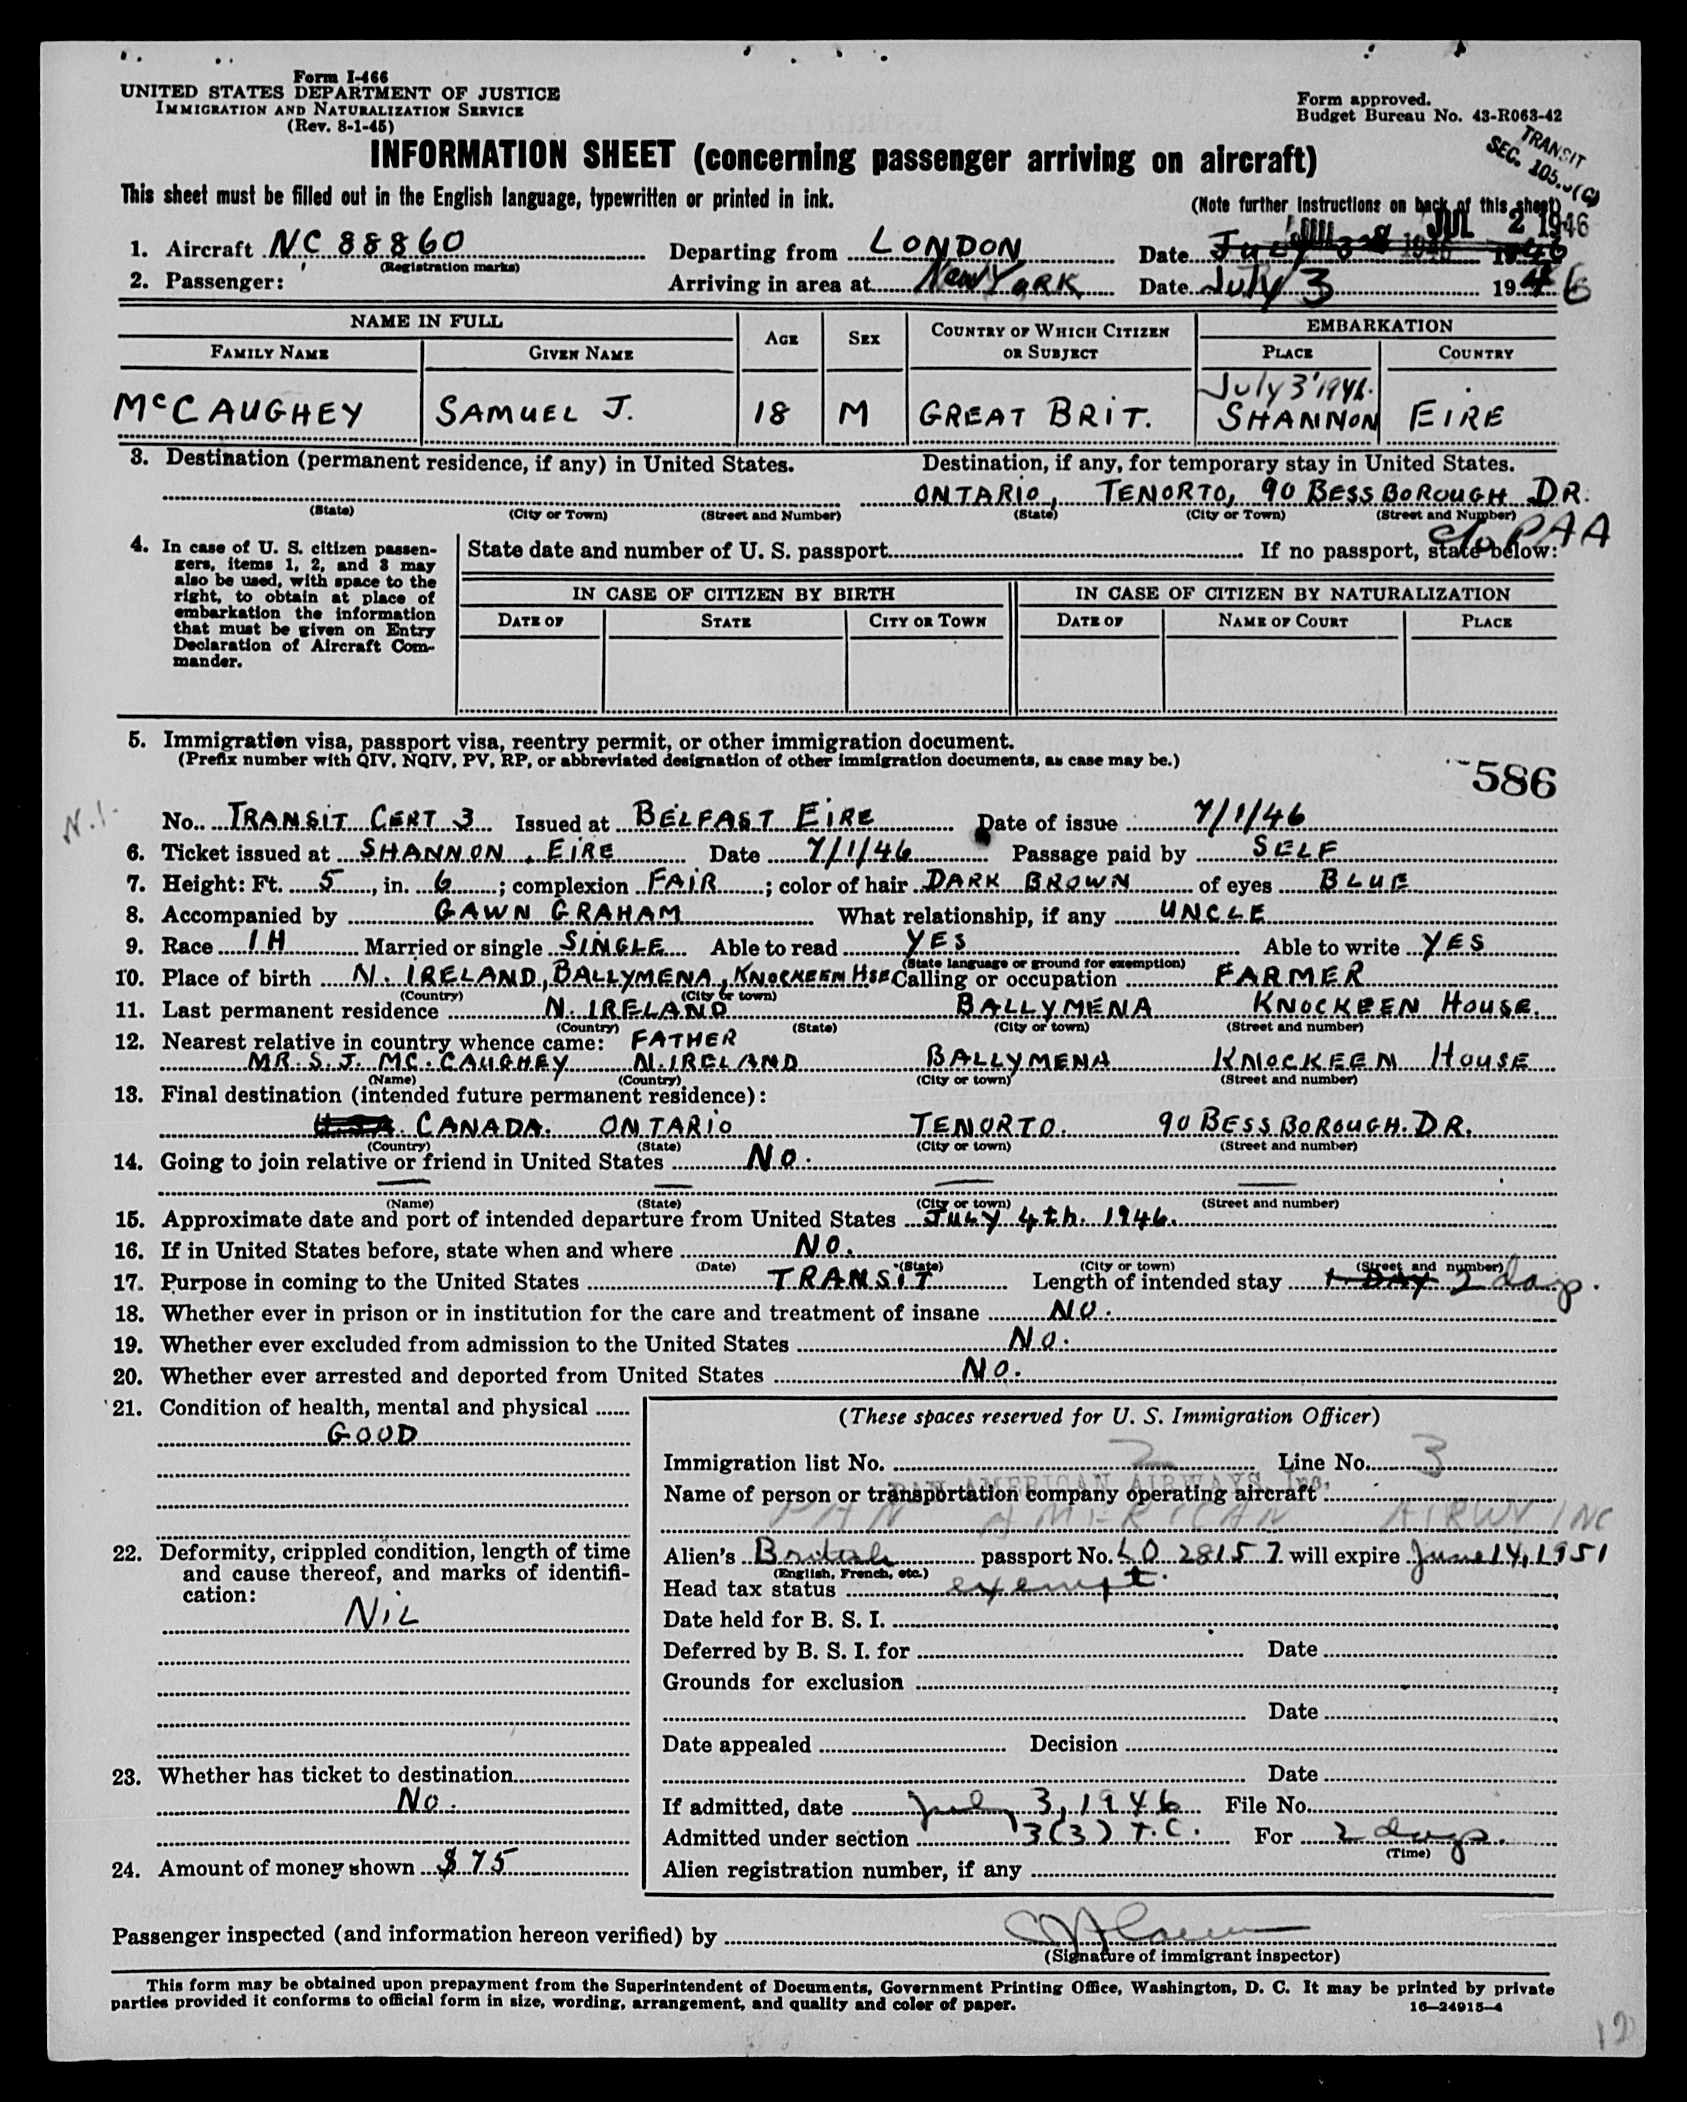 Form I-466
UNITED STATES DEPARTMENT OF JUSTICE
IMMIGRATION AND NATURALIZATION SERVICE
(Rev. 8-1-45)
Form approved.
Budget Bureau No. 43-R063-42
TRANSIT
SEC. 105.3(C)
INFORMATION SHEET (concerning passenger arriving on aircraft)
This sheet must be filled out in the English language, typewritten or printed in ink.
(Note further instructions on back of this sheet)
JUL 2 1946
1. Aircraft NC 88860 Departing from LONDON Date July 1946
(Registration marks)
2. Passenger: Arriving in area at New York Date July 3 1946
NAME IN FULL AGE SEX COUNTRY OF WHICH CITIZEN OR SUBJECT EMBARKATION
FAMILY NAME GIVEN NAME PLACE COUNTRY
July 3 1946.
McCAUGHEY SAMUEL J. 18 M GREAT BRIT. SHANNON EIRE
3. Destination (permanent residence, if any) in United States. Destination, if any, for temporary stay in United States.
ONTARIO, TENORTO, 90 BESSBOROUGH DR.
(State) (City or Town) (Street and Number) (State) (City or Town) (Street and Number)
c/o PAA
4. In case of U. S. citizen passengers, items 1, 2, and 3 may also be used, with space to the right, to obtain at place of embarkation the information that must be given on Entry Declaration of Aircraft Commander.
State date and number of U. S. passport If no passport, state below:
IN CASE OF CITIZEN BY BIRTH IN CASE OF CITIZEN BY NATURALIZATION
DATE OF STATE CITY OR TOWN DATE OF NAME OF COURT PLACE
5. Immigration visa, passport visa, reentry permit, or other immigration document.
(Prefix number with QIV, NQIV, PV, RP, or abbreviated designation of other immigration documents, as case may be.)
586
N.I.
No. TRANSIT CERT 3 Issued at BELFAST EIRE Date of issue 7/1/46
6. Ticket issued at SHANNON, EIRE Date 7/1/46 Passage paid by SELF
7. Height: Ft. 5, in. 6; complexion FAIR; color of hair DARK BROWN of eyes BLUE
8. Accompanied by GAWN GRAHAM What relationship, if any UNCLE
9. Race IH Married or single SINGLE Able to read YES Able to write YES
(State language or ground for exemption)
10. Place of birth N. IRELAND, BALLYMENA, KNOCKEEN HSE Calling or occupation FARMER
(Country) (City or town)
11. Last permanent residence N. IRELAND BALLYMENA KNOCKEEN HOUSE.
(Country) (State) (City or town) (Street and number)
12. Nearest relative in country whence came: FATHER
MR. S. J. MC. CAUGHEY N. IRELAND BALLYMENA KNOCKEEN HOUSE
(Name) (Country) (City or town) (Street and number)
13. Final destination (intended future permanent residence):
U.S.A. CANADA. ONTARIO TENORTO. 90 BESSBOROUGH. DR.
(Country) (State) (City or town) (Street and number)
14. Going to join relative or friend in United States NO.
(Name) (State) (City or town) (Street and number)
15. Approximate date and port of intended departure from United States JULY 4th. 1946.
16. If in United States before, state when and where NO.
(Date) (State) (City or town) (Street and number)
17. Purpose in coming to the United States TRANSIT Length of intended stay 1 DAY 2 days.
18. Whether ever in prison or in institution for the care and treatment of insane NO.
19. Whether ever excluded from admission to the United States NO.
20. Whether ever arrested and deported from United States NO.
21. Condition of health, mental and physical
GOOD
22. Deformity, crippled condition, length of time and cause thereof, and marks of identification:
NIL
23. Whether has ticket to destination
No.
24. Amount of money shown $75
(These spaces reserved for U. S. Immigration Officer)
Immigration list No. 2 Line No. 3
PAN AMERICAN AIRWAYS, Inc.
Name of person or transportation company operating aircraft
PAN AMERICAN AIRWY INC
Alien's British passport No. LO 28157 will expire June 14, 1951
(English, French, etc.)
Head tax status exempt.
Date held for B. S. I.
Deferred by B. S. I. for Date
Grounds for exclusion
Date
Date appealed Decision
Date
If admitted, date July 3, 1946 File No.
Admitted under section 3(3) T.C. For 2 days.
(Time)
Alien registration number, if any
Passenger inspected (and information hereon verified) by
(Signature of immigrant inspector)
This form may be obtained upon prepayment from the Superintendent of Documents, Government Printing Office, Washington, D. C. It may be printed by private
parties provided it conforms to official form in size, wording, arrangement, and quality and color of paper. 16—24915-4